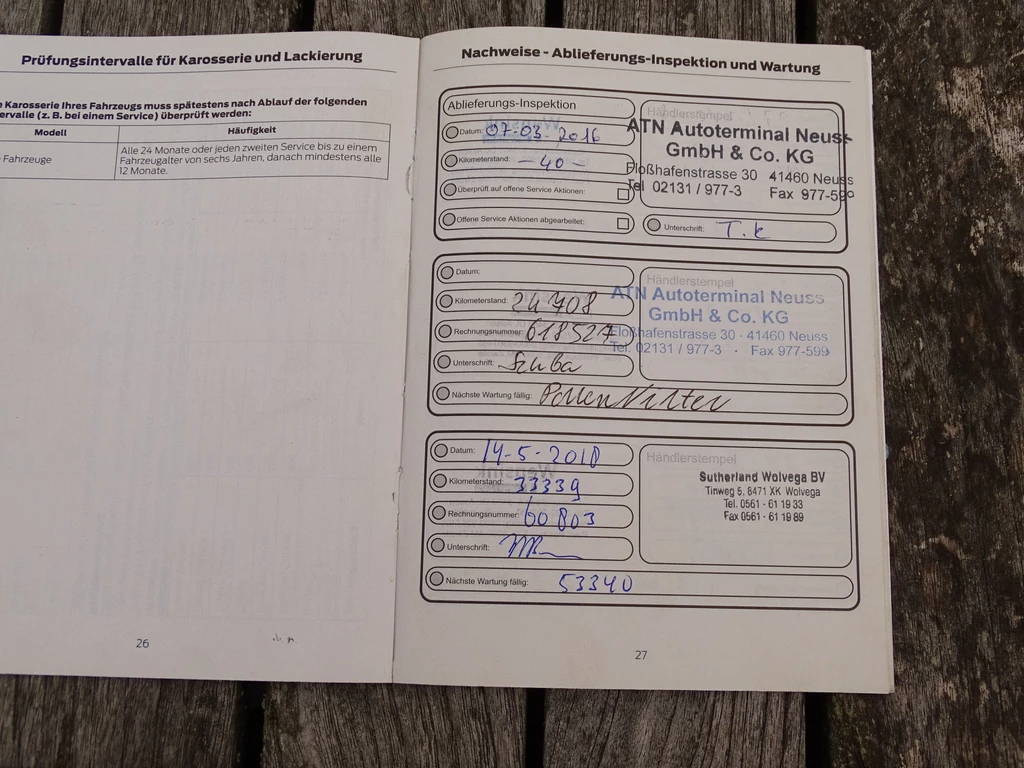 Prüfungsintervalle für Karosserie und Lackierung
e Karosserie Ihres Fahrzeugs muss spätestens nach Ablauf der folgenden
ervalle (z. B. bei einem Service) überprüft werden:
Modell
Häufigkeit
Fahrzeuge
Alle 24 Monate oder jeden zweiten Service bis zu einem
Fahrzeugalter von sechs Jahren, danach mindestens alle
12 Monate.
26
Nachweise - Ablieferungs-Inspektion und Wartung
Ablieferungs-Inspektion
Datum: 07-03-2016
Kilometerstand: - 40 -
Überprüft auf offene Service Aktionen:
Offene Service Aktionen abgearbeitet:
Händlerstempel
ATN Autoterminal Neuss
GmbH & Co. KG
Floßhafenstrasse 30 41460 Neuss
Tel 02131 / 977-3 Fax 977-599
Unterschrift: T.k
Datum:
Kilometerstand: 24 708
Rechnungsnummer: 618527
Unterschrift: Szuba
Nächste Wartung fällig: Pollen
Händlerstempel
ATN Autoterminal Neuss
GmbH & Co. KG
Floßhafenstrasse 30 - 41460 Neuss
Tel. 02131 / 977-3 · Fax 977-599
Datum: 14-5-2018
Kilometerstand: 33339
Rechnungsnummer: 60803
Unterschrift:
Nächste Wartung fällig: 53340
Händlerstempel
Sutherland Wolvega BV
Tinweg 5, 8471 XK Wolvega
Tel. 0561 - 61 19 33
Fax 0561 - 61 19 89
27